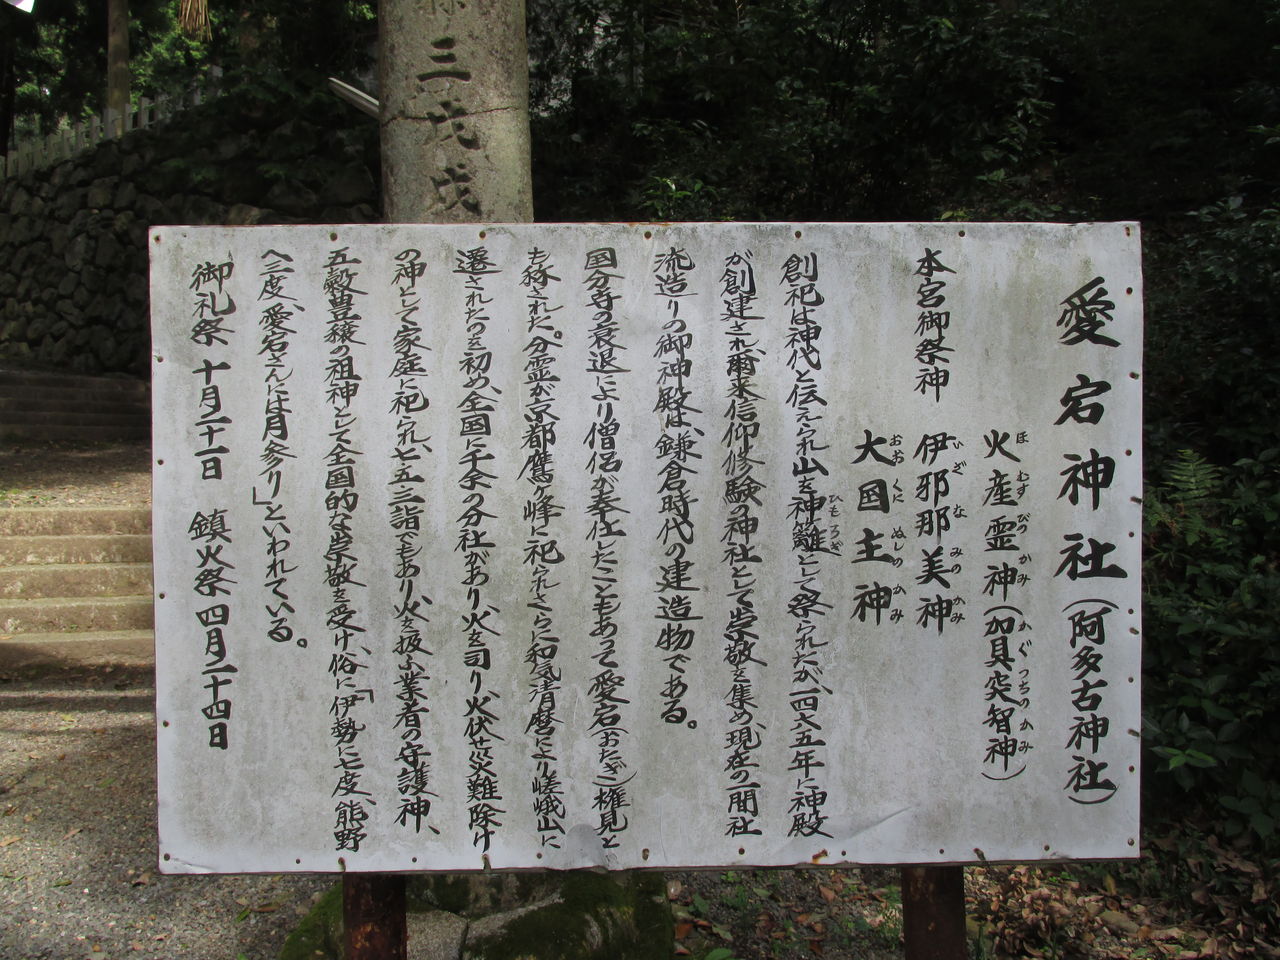 愛宕神社(阿多古神社)
火産霊神(加具突智神)
ほむすびのかみ かぐつちのかみ
本宮御祭神 伊邪那美神
いざなみのかみ
大国主神
おおくにぬしのかみ
創祀は神代と伝えられ山を神籬として祭られたが、一四六五年に神殿
ひもろぎ
が創建され、爾来信仰修験の神社として崇敬を集め、現在の一間社
流造りの御神殿は、鎌倉時代の建造物である。
国分寺の衰退により僧侶が奉仕したこともあって愛宕(おたぎ)権見と
も称された。分霊が京都鷹ヶ峰に祀られさらに和気清麿により嵯峨山に
遷されたのを初め、全国に千余の分社があり、火を司り、火伏せ災難除け
の神として家庭に祀られ、七五三詣でもあり、火を扱ふ業者の守護神、
五穀豊穣の祖神として全国的な崇敬を受け、俗に「伊勢に七度、熊野
へ三度、愛宕さんには月参り」といわれている。
御礼祭 十月二十二日 鎮火祭 四月二十四日
三戊戌